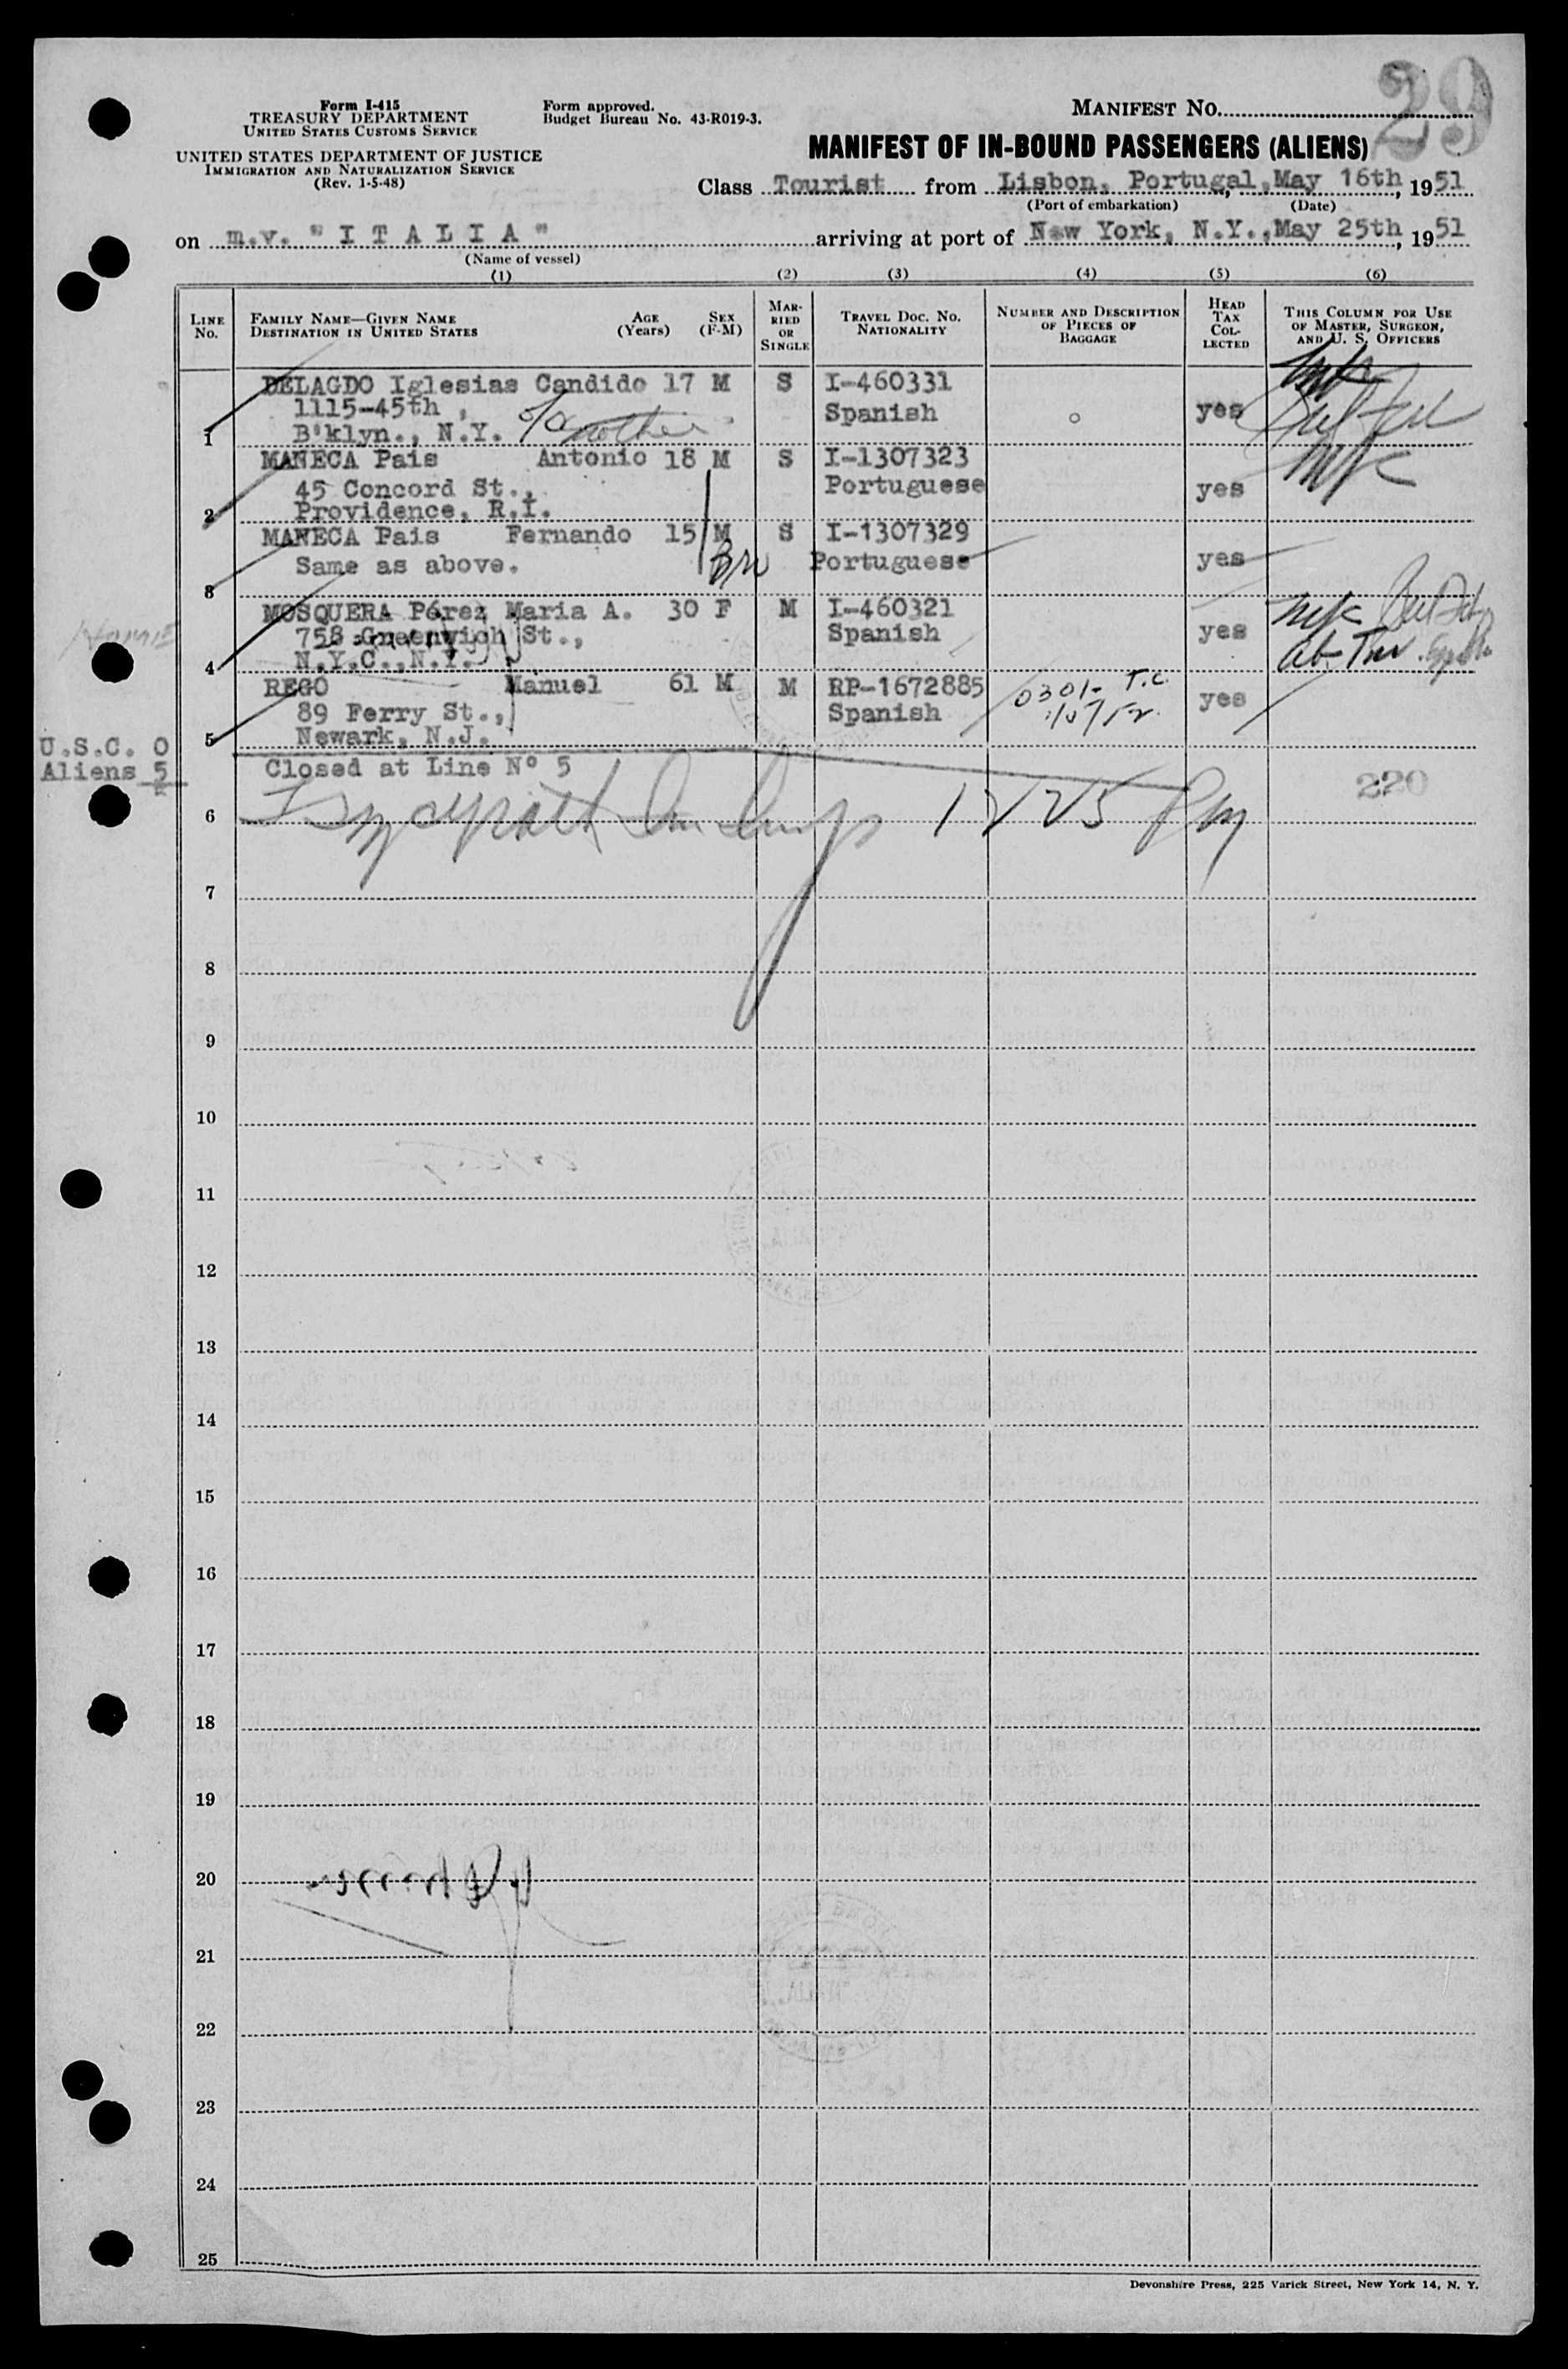 29
Form I-415
TREASURY DEPARTMENT
UNITED STATES CUSTOMS SERVICE
UNITED STATES DEPARTMENT OF JUSTICE
IMMIGRATION AND NATURALIZATION SERVICE
(Rev. 1-5-48)
Form approved.
Budget Bureau No. 43-R019-3.
MANIFEST NO.
MANIFEST OF IN-BOUND PASSENGERS (ALIENS)
Class Tourist from Lisbon, Portugal, May 16th, 1951
(Port of embarkation) (Date)
on m.v. "I T A L I A" arriving at port of New York, N.Y., May 25th, 1951
(Name of vessel)
(1) (2) (3) (4) (5) (6)
LINE No.
FAMILY NAME—GIVEN NAME
DESTINATION IN UNITED STATES
AGE (Years)
SEX (F-M)
MAR-RIED OR SINGLE
TRAVEL DOC. NO. NATIONALITY
NUMBER AND DESCRIPTION OF PIECES OF BAGGAGE
HEAD TAX COL-LECTED
THIS COLUMN FOR USE OF MASTER, SURGEON, AND U. S. OFFICERS
DELAGDO Iglesias Candido 17 M S I-460331
1115-45th , Spanish yes
1 B'klyn., N.Y. c/o mother
MANECA Pais Antonio 18 M S I-1307323
45 Concord St., Portuguese yes
2 Providence, R.I.
MANECA Pais Fernando 15 M S I-1307329
Same as above. Portuguese yes
3
MOSQUERA Pérez Maria A. 30 F M I-460321
758 Greenwich St., Spanish yes
4 N.Y.C., N.Y.
REGO Manuel 61 M M RP-1672885 0301- T.C.
89 Ferry St., Spanish yes
5 Newark, N.J.
U.S.C. 0
Aliens 5
Closed at Line Nº 5
220
6
7
8
9
10
11
12
13
14
15
16
17
18
19
20
21
22
23
24
25
Devonshire Press, 225 Varick Street, New York 14, N. Y.